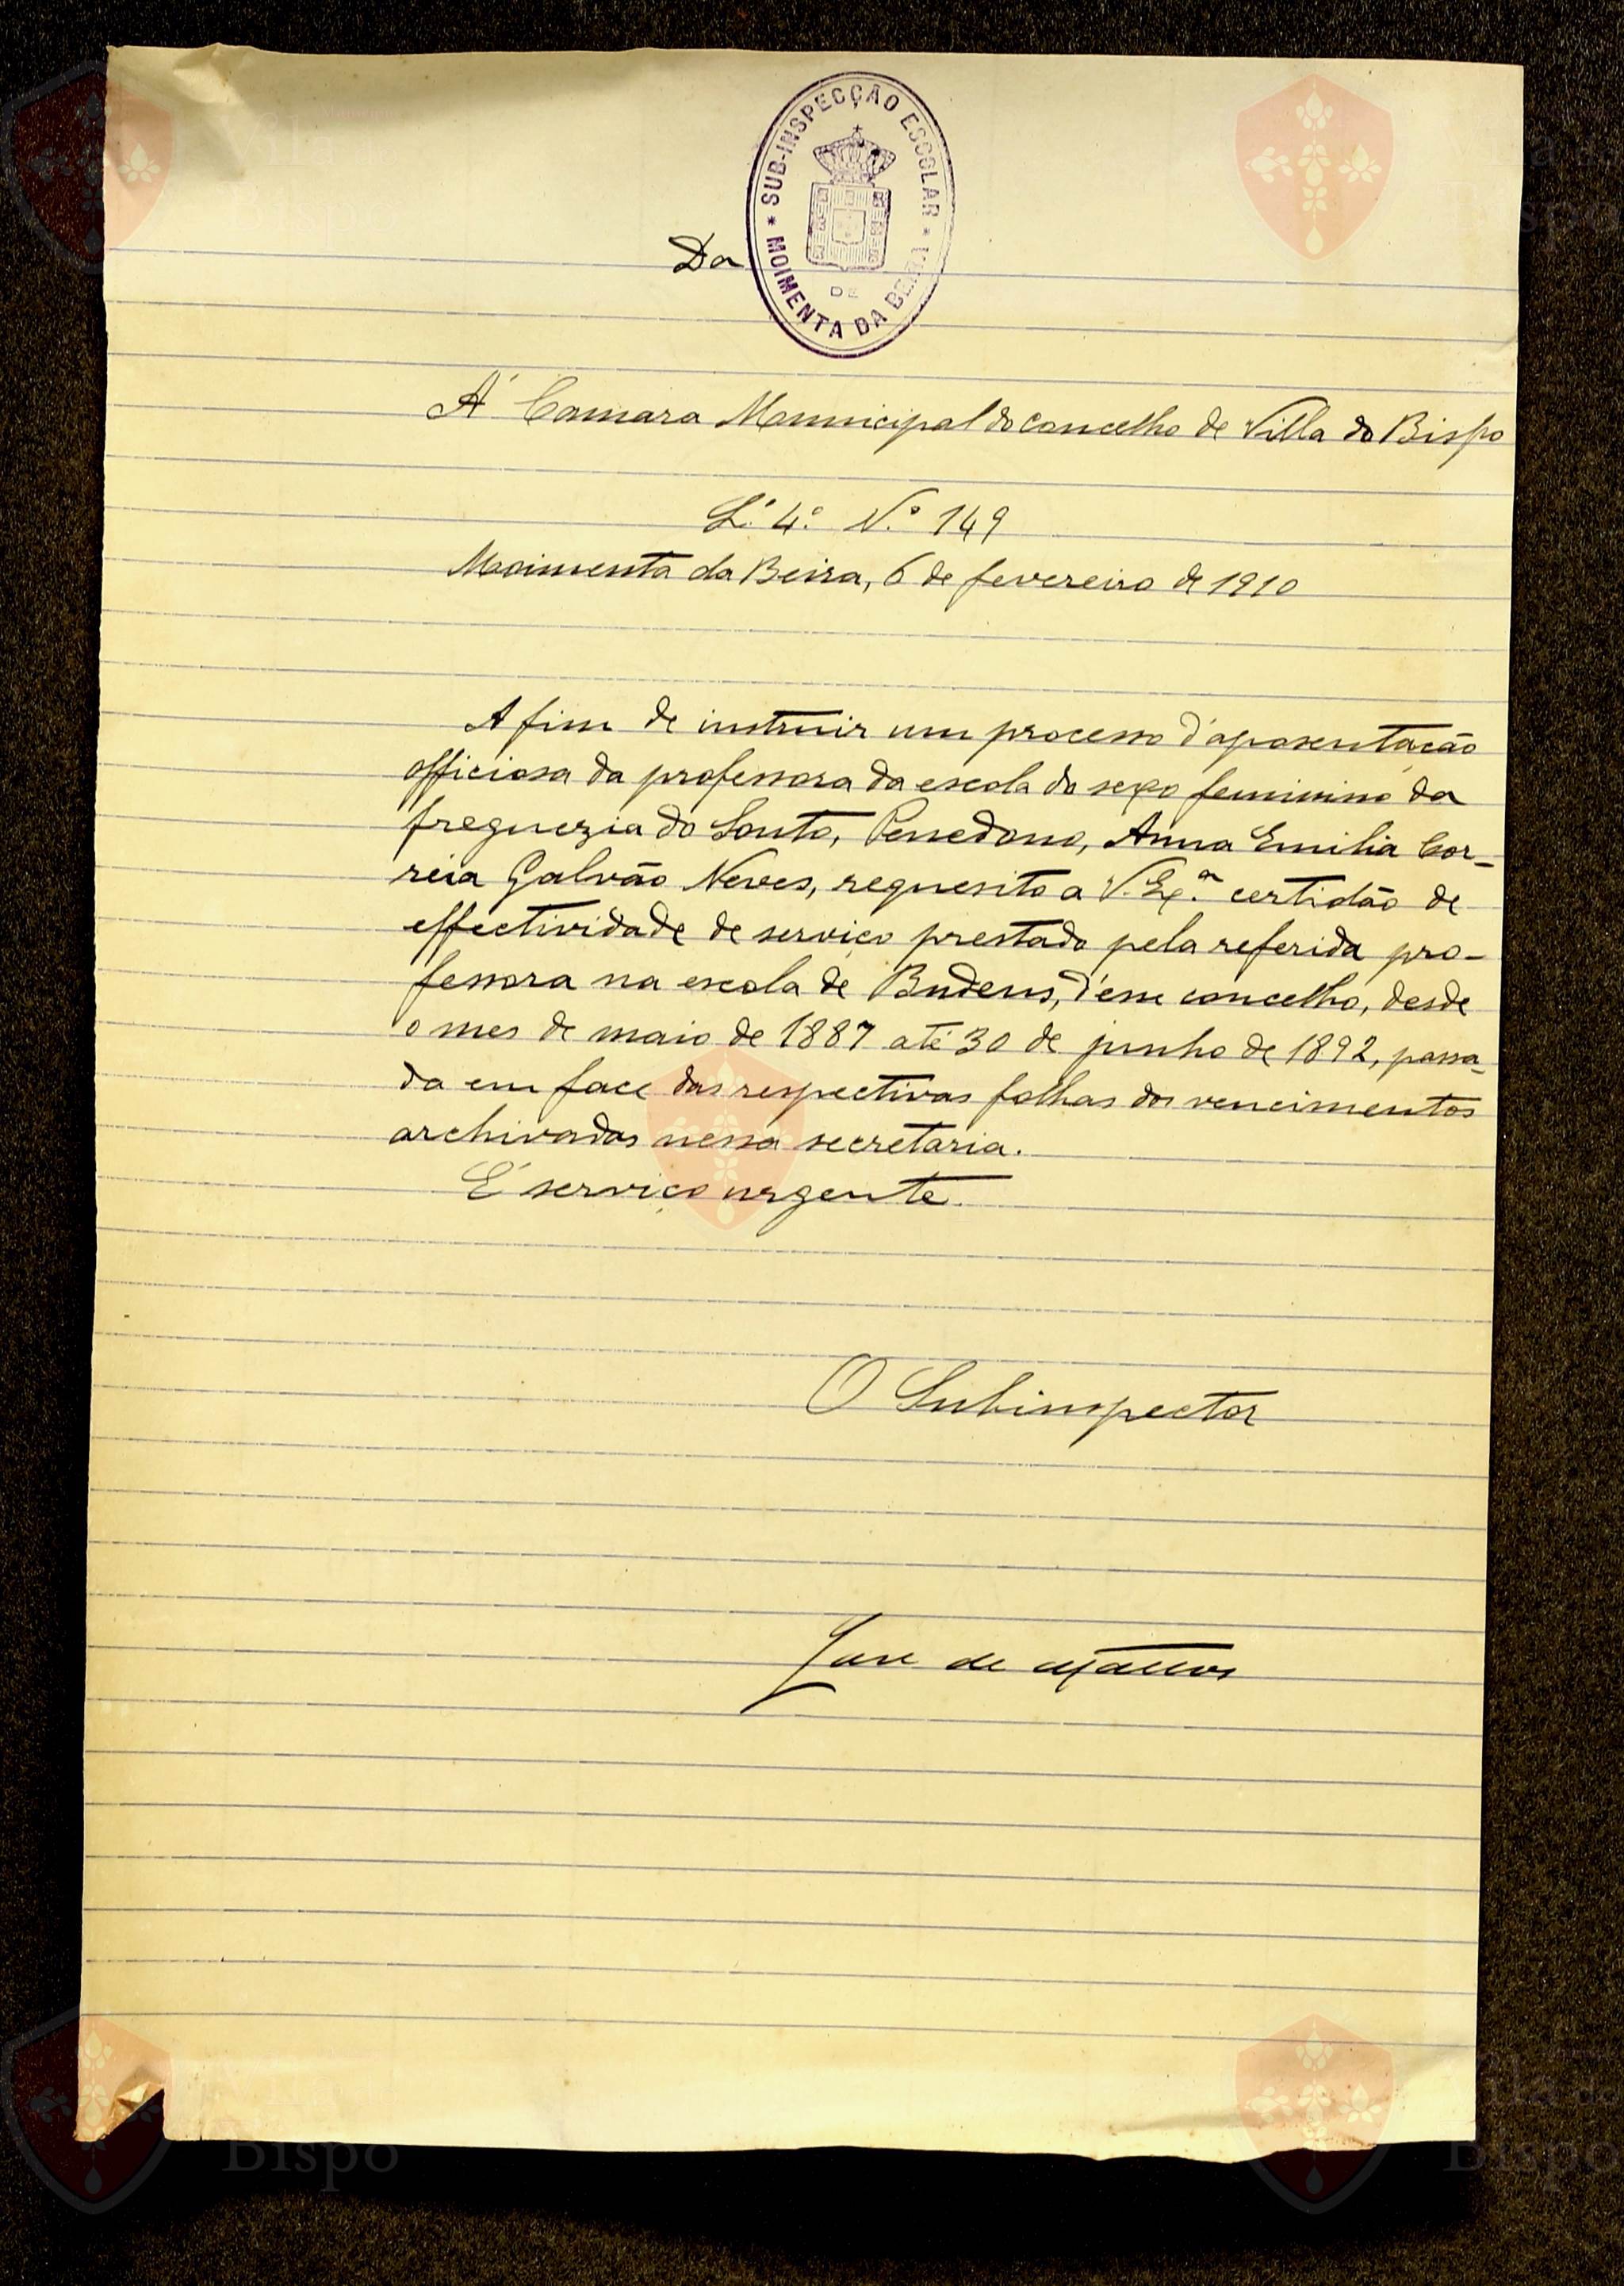 SUB-INSPECÇÃO ESCOLAR
DE
MOIMENTA DA BEIRA
Da
Á Camara Municipal do concelho de Villa do Bispo
L.º 4.º N.º 149
Moimenta da Beira, 6 de fevereiro de 1910
A fim de instruir um processo d'aposentação
officiosa da professora da escola do sexo feminino da
freguezia do Souto, Penedono, Anna Emilia Cor-
reia Galvão Neves, requesito a V. Ex.ª certidão de
effectividade de serviço prestado pela referida pro-
fessora na escola de Budens, d'esse concelho, desde
o mes de maio de 1887 até 30 de junho de 1892, passa-
da em face das respectivas folhas dos vencimentos
archivadas nessa secretaria.
É serviço urgente.
O Subinspector
José de Mattos
Bispo
Bispo
Bispo
Bispo